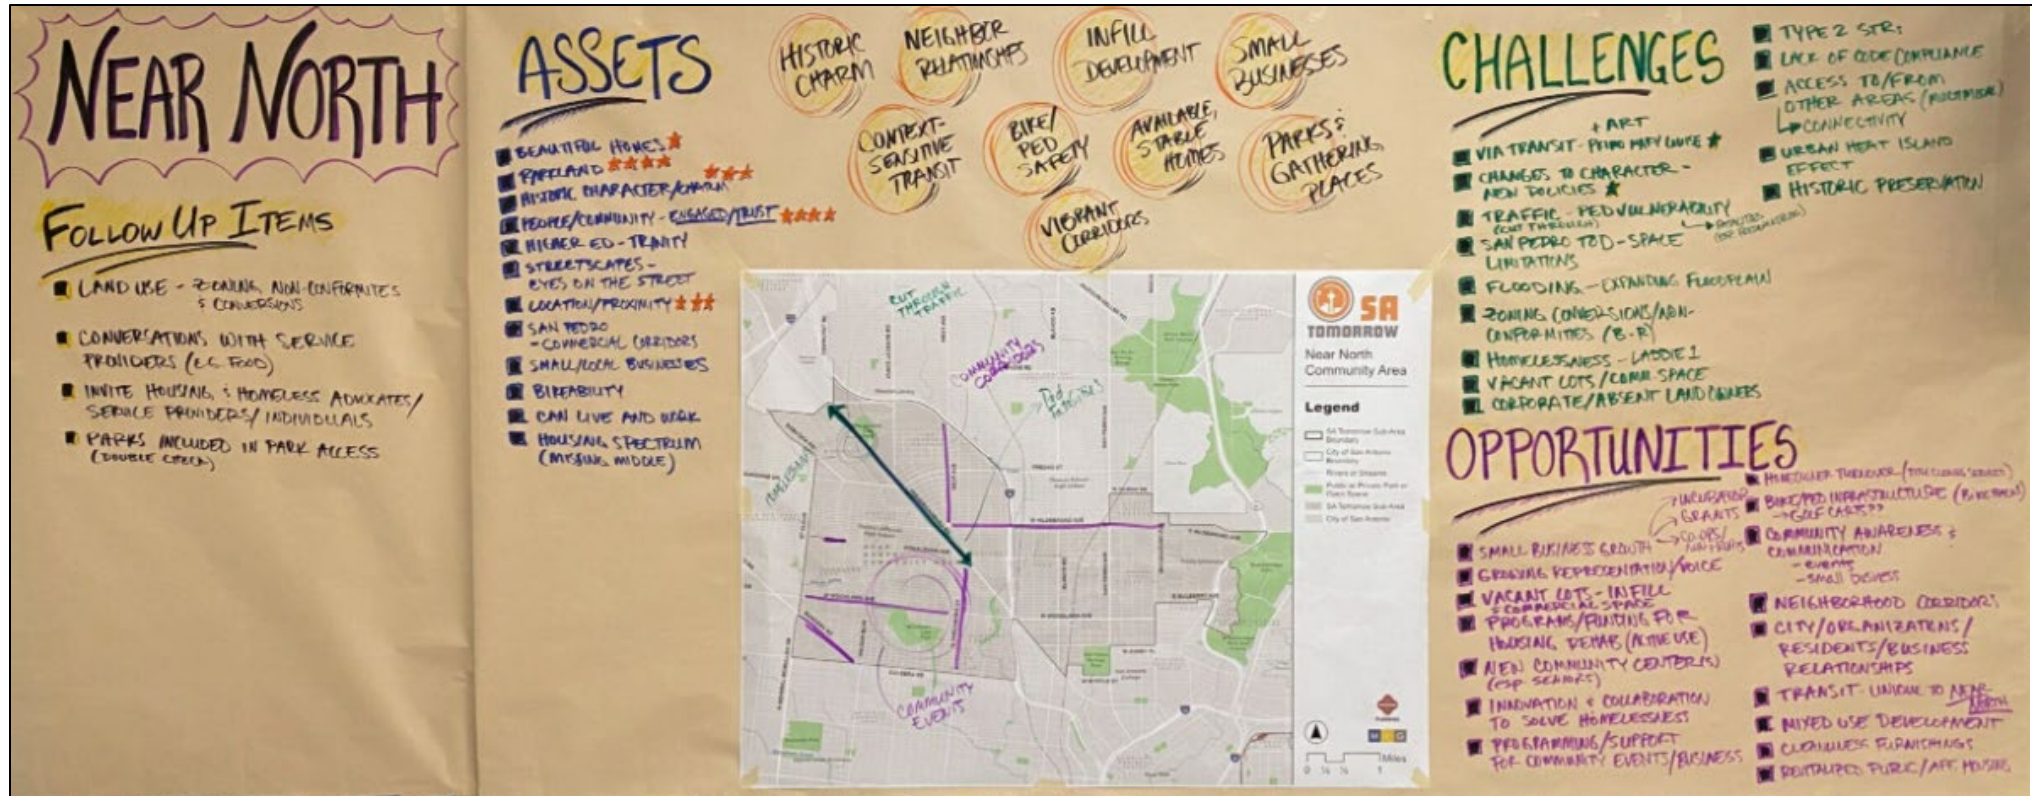 NEAR NORTH
FOLLOW UP ITEMS
LAND USE - ZONING NON-CONFORMITES
& CONVERSIONS
CONVERSATIONS WITH SERVICE
PROVIDERS (E.G. FOOD)
INVITE HOUSING & HOMELESS ADVOCATES/
SERVICE PROVIDERS/INDIVIDUALS
PARKS INCLUDED IN PARK ACCESS
(DOUBLE CHECK)
ASSETS
BEAUTIFUL HOMES
PARKLAND
HISTORIC CHARACTER/CHARM
PEOPLE/COMMUNITY - ENGAGED/TRUST
HIGHER ED - TRINITY
STREETSCAPES -
EYES ON THE STREET
LOCATION/PROXIMITY
SAN PEDRO
- COMMERCIAL CORRIDORS
SMALL/LOCAL BUSINESSES
BIKEABILITY
CAN LIVE AND WORK
HOUSING SPECTRUM
(MISSING MIDDLE)
HISTORIC
CHARM
NEIGHBOR
RELATIONSHIPS
INFILL
DEVELOPMENT
SMALL
BUSINESSES
CONTEXT-
SENSITIVE
TRANSIT
BIKE/
PED
SAFETY
AVAILABLE,
STABLE
HOMES
PARKS &
GATHERING
PLACES
VIBRANT
CORRIDORS
CUT
THROUGH
TRAFFIC
COMMUNITY
CORRIDORS
COMMUNITY
EVENTS
SA
TOMORROW
Near North
Community Area
Legend
SA Tomorrow Sub-Area
Boundary
City of San Antonio
Boundary
Rivers or Streams
Public or Private Park or
Open Space
SA Tomorrow Sub-Area
City of San Antonio
Miles
CHALLENGES
+ ART
VIA TRANSIT -
CHANGES TO CHARACTER -
NEW POLICIES
TRAFFIC - PED VULNERABILITY
(CUT THROUGH)
SAN PEDRO TOD - SPACE
LIMITATIONS
FLOODING - EXPANDING FLOODPLAIN
ZONING CONVERSIONS/NON-
CONFORMITIES (B-R)
HOMELESSNESS -
VACANT LOTS/COMM. SPACE
CORPORATE/ABSENT LAND OWNERS
TYPE 2 STRs
LACK OF CODE COMPLIANCE
ACCESS TO/FROM
OTHER AREAS (MULTIMODAL)
CONNECTIVITY
URBAN HEAT ISLAND
EFFECT
HISTORIC PRESERVATION
OPPORTUNITIES
INCUBATOR
GRANTS
SMALL BUSINESS GROWTH
GROWING REPRESENTATION/VOICE
VACANT LOTS - INFILL
& COMMERCIAL SPACE
PROGRAMS/FUNDING FOR
HOUSING REHAB (ACTIVE USE)
NEW COMMUNITY CENTER(S)
(esp SENIORS)
INNOVATION & COLLABORATION
TO SOLVE HOMELESSNESS
PROGRAMMING/SUPPORT
FOR COMMUNITY EVENTS/BUSINESS
BIKE/PED INFRASTRUCTURE
GOLF CARTS??
COMMUNITY AWARENESS &
COMMUNICATION
- events
- small business
NEIGHBORHOOD CORRIDORS
CITY/ORGANIZATIONS/
RESIDENTS/BUSINESS
RELATIONSHIPS
TRANSIT - UNIQUE TO NEAR
NORTH
MIXED USE DEVELOPMENT
CLEANLINESS FURNISHINGS
REVITALIZED PUBLIC/AFF. HOUSING